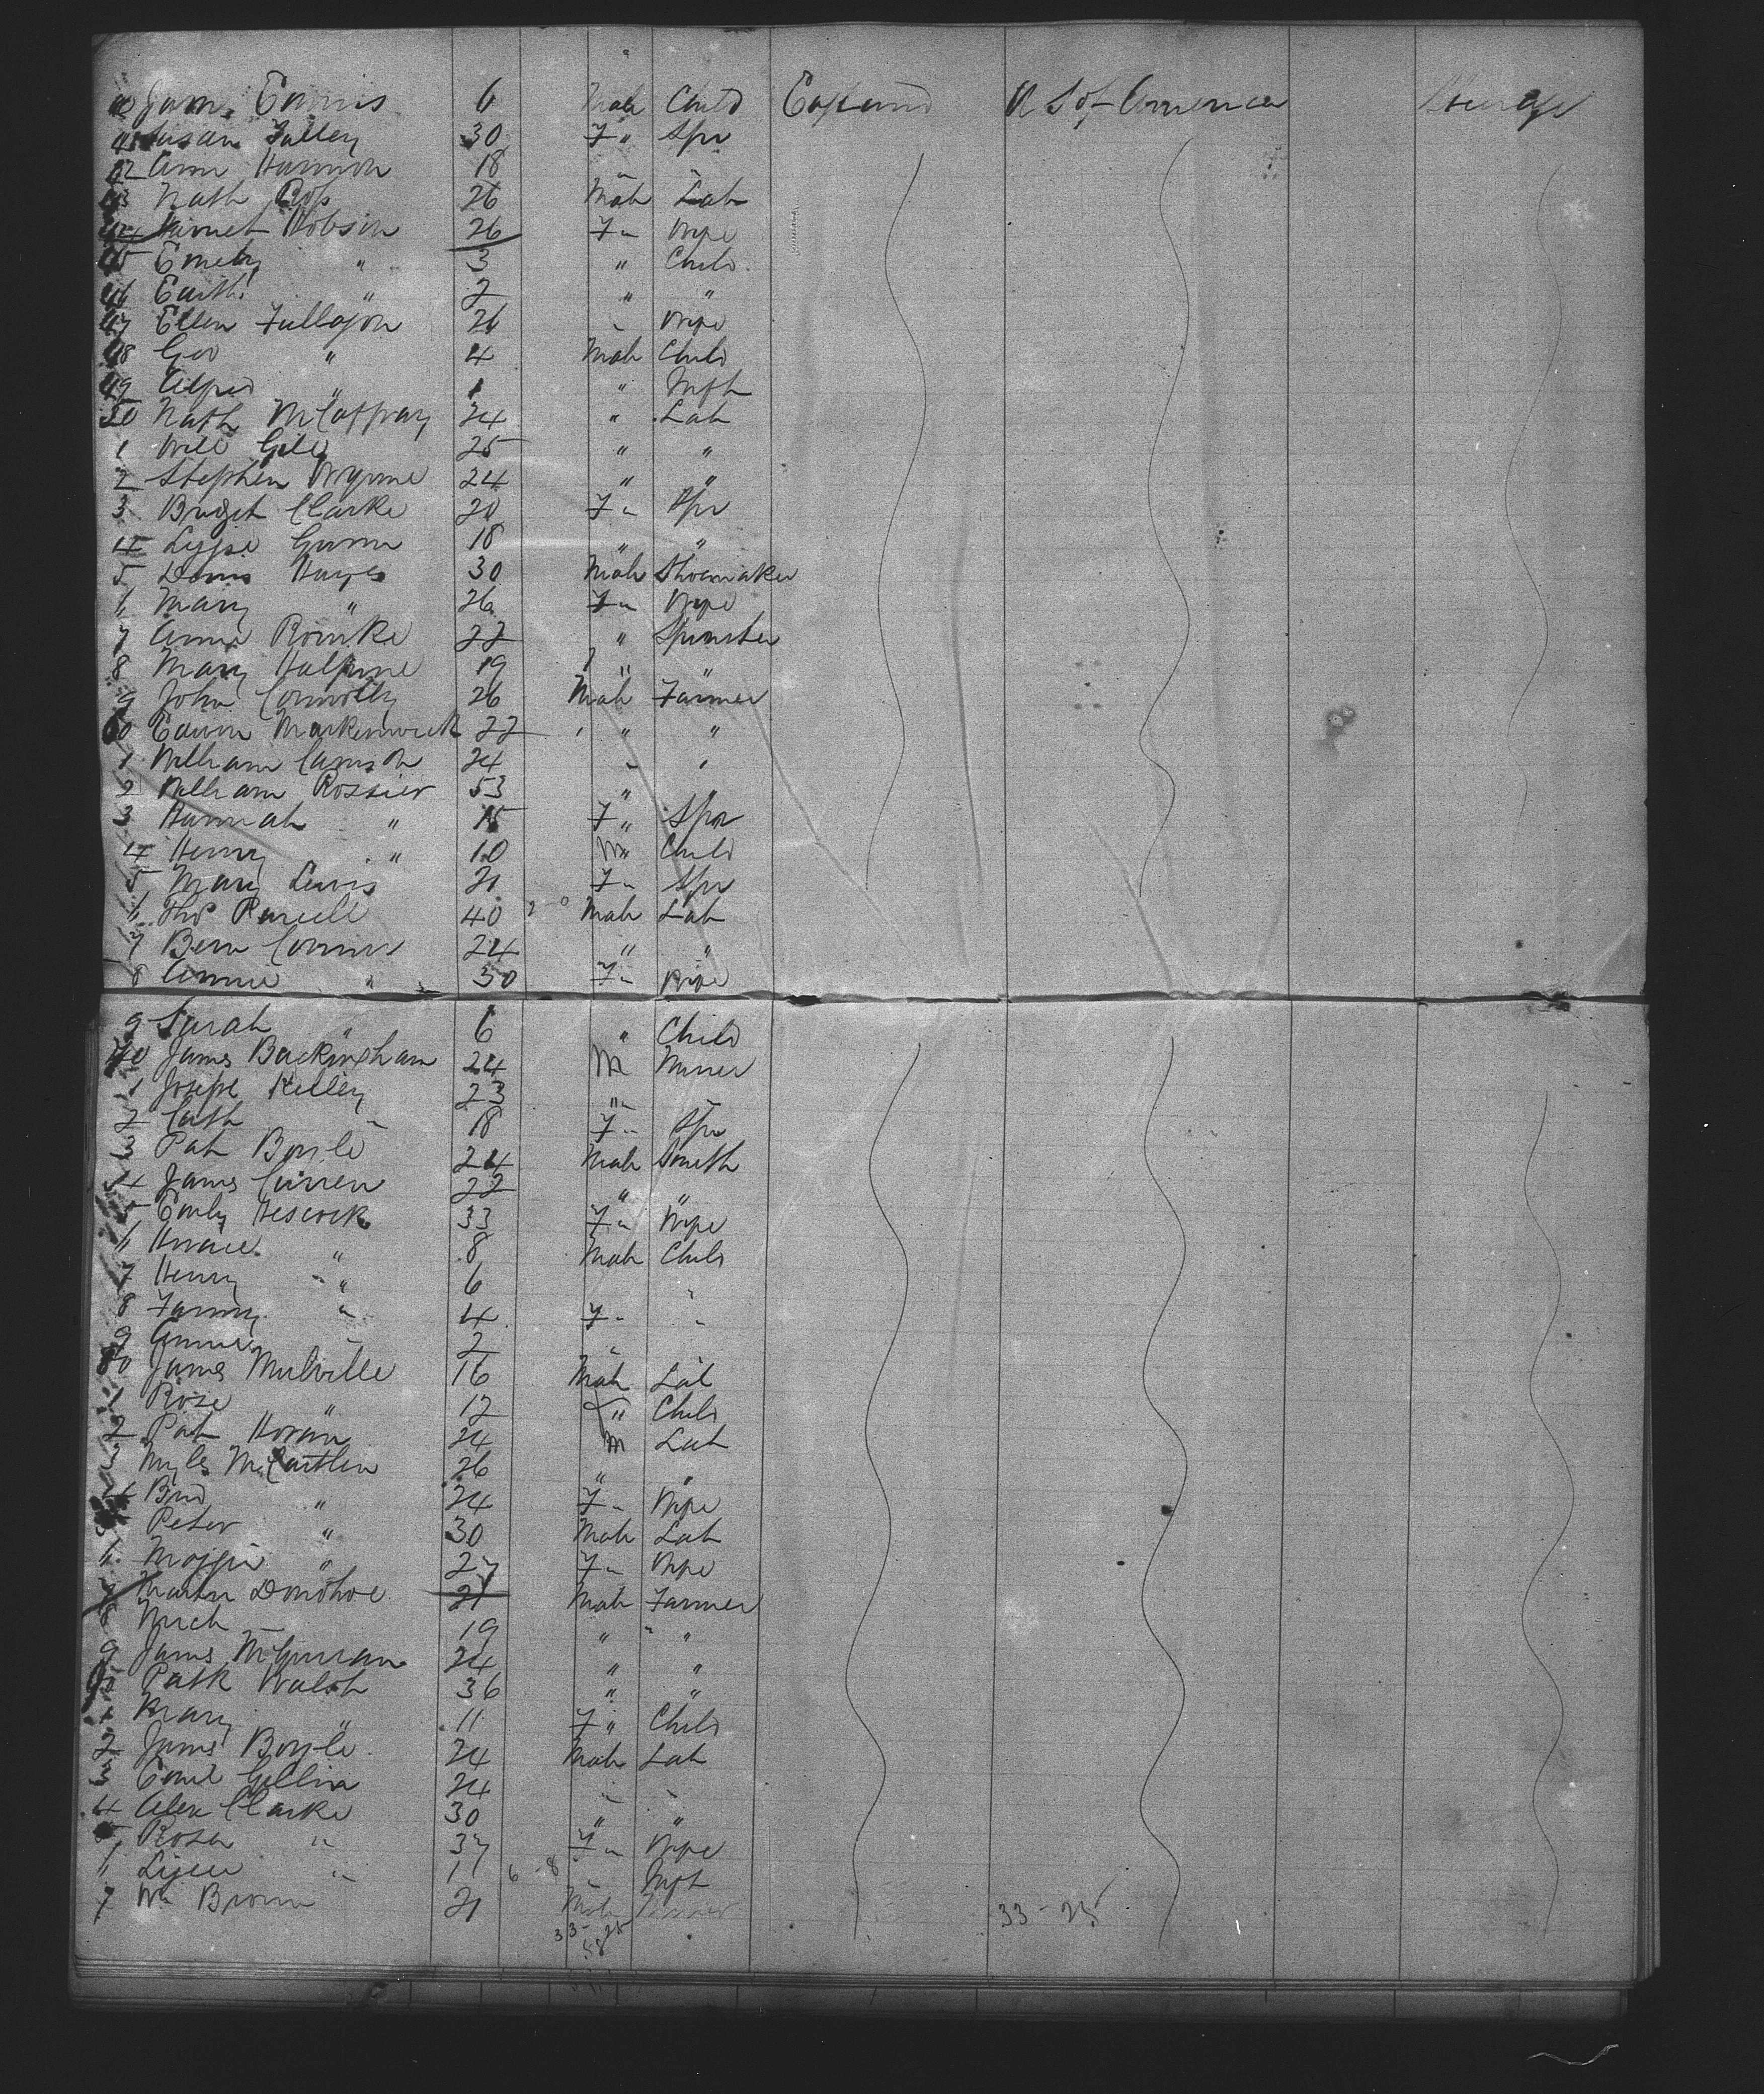 40 James Ennis 6 Male Child England U S of America Steerage
41 Susan Talley 30 F " Spr
42 Ann Hannon 18 " "
43 Nath Ross 26 Male Lab
44 Harriet Hobson 26 F " Wife
45 Emily " 3 " Child
46 Edith " 2 " "
47 Ellen Fullagon 26 " Wife
48 Geo " 4 Male Child
49 Alfred " 1 " Inft
50 Nath McCaffray 24 " Lab
1 Will Gill 25 " "
2 Stephen Wynne 24 " "
3 Bridget Clarke 20 F " Spr
4 Lizzie Gunn 18 " "
5 Denis Hayes 30 Male Shoemaker
6 Mary " 26 F " Wife
7 Annie Rourke 22 " Spinster
8 Mary Halpine 19 " "
9 John Connolly 26 Male Farmer
60 Edwin Markenwick 22 " "
1 William 24 " "
2 William Rossier 53 " "
3 Hannah " 15 F " Spr
4 Henry " 10 M " Child
5 Mary Lewis 21 F " Spr
6 Thos Purcell 40 Male Lab
7 Bern Connors 24 " "
8 Annie " 30 F " Wife
9 Sarah " 6 " Child
70 James Buckingham 24 M Miner
1 Joseph Kelley 23 " "
2 Cath " 18 F " Spr
3 Pat Boyle 24 Male Smith
4 James Curren 22 " "
5 Emily Hescock 33 F " Wife
6 Horace " 8 Male Child
7 Henry " 6 "
8 Fanny " 4 F " "
9 Annie " 2 "
80 James Mulville 16 Male Lab
1 Rose " 12 " Child
2 Pat Horan 24 M Lab
3 Myles McCartlen 26 " "
4 Brid " 24 F " Wife
5 Peter " 30 Male Lab
6 Maggie " 27 F " Wife
7 Martin Donohoe 21 Male Farmer
8 Mich 19 " "
9 James McGurran 24 " "
90 Patk Walsh 36 " "
1 Mary " 11 F " Child
2 James Boyle 24 Male Lab
3 24 " "
4 Alex Clarke 30 " "
5 Rosa " 37 F " Wife
6 " " Inft
7 Wm Brown 21 Male Farmer 33-25
33-25
58